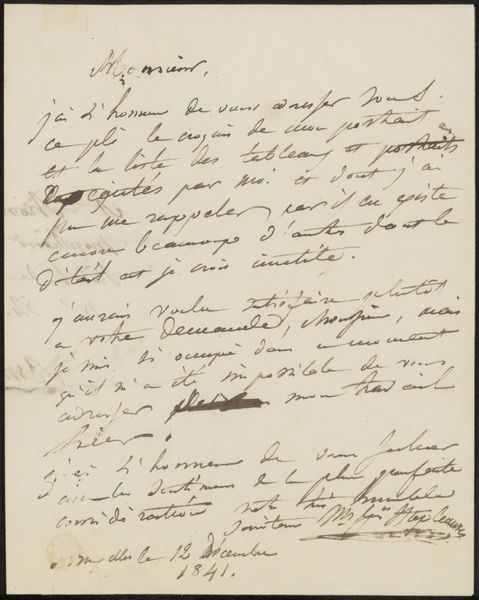 Monsieur,
j'ai l'honneur de vous adresser sous
ce pli le croquis de mon portrait
et la liste des tableaux et portraits
exécutés par moi et dont j'ai
pu me rappeler, car il en existe
encore beaucoup d'autres dont le
détail est je crois inutile.
j'aurais voulu satisfaire plutot
a votre demande, Monsieur, mais
je suis si occupé dans ce moment
qu'il m'a été impossible de vous
adresser mon travail
hier
j'ai l'honneur de vous saluer
avec les sentimens de la plus parfaite
considération votre très humble
serviteur
Bruxelles le 12 Décembre
1841.